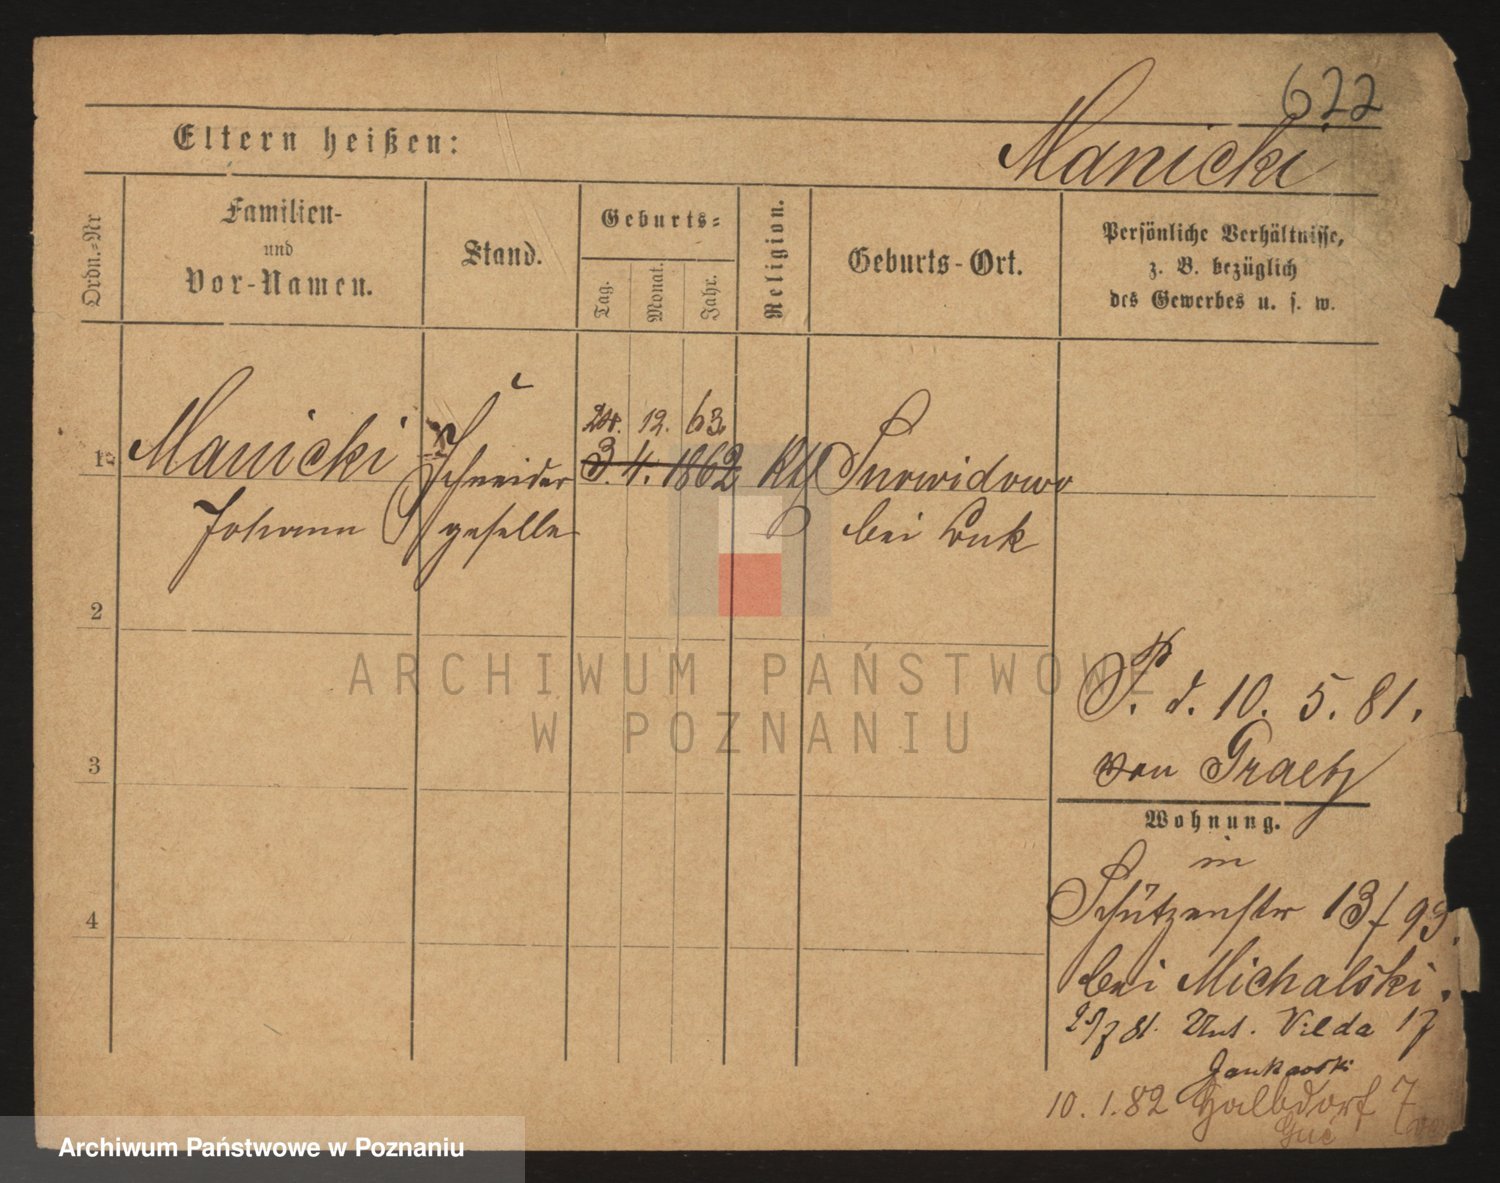 622
Eltern heißen:
Manicki
Ordn.-Nr
Familien-
und
Vor-Namen.
Stand.
Geburts-
Tag.
Monat.
Jahr.
Religion.
Geburts-Ort.
Persönliche Verhältnisse,
z. B. bezüglich
des Gewerbes u. s. w.
24. 12. 63
1
Manicki
Schneider
3. 4. 1862
Kth
Snowidowo
Johann
geselle
bei Buk
2
P. d. 10. 5. 81.
von Graetz
3
Wohnung.
in
Schützenstr 13/
4
bei Michalski.
81. Unt. Vilda 17
Jankowski
10. 1. 82 Halbdorf 7
ARCHIWUM PAŃSTWOWE
W POZNANIU
Archiwum Państwowe w Poznaniu